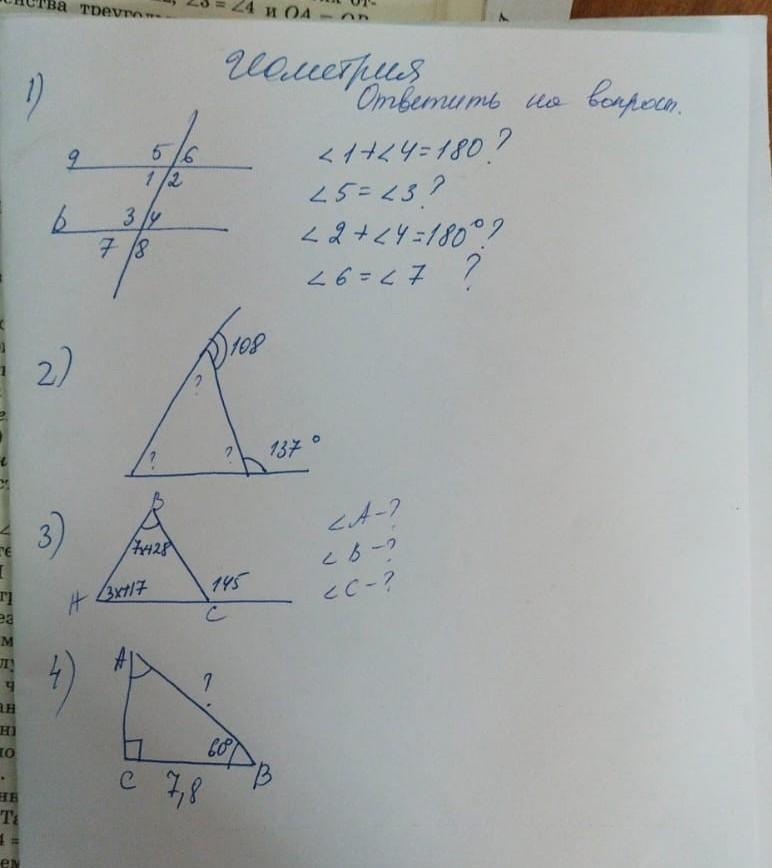 ∠3 = ∠4 и OA = OB
Геометрия
Ответить на вопросы.
1)
a
5 6
1 2
b
3 4
7 8
∠1+∠4=180?
∠5=∠3?
∠2+∠4=180°?
∠6=∠7 ?
2)
108
?
? ?
137°
3)
B
7x+28
3x+17
145
A
C
∠A-?
∠B-?
∠C-?
4)
A
?
60°
C
7,8
B